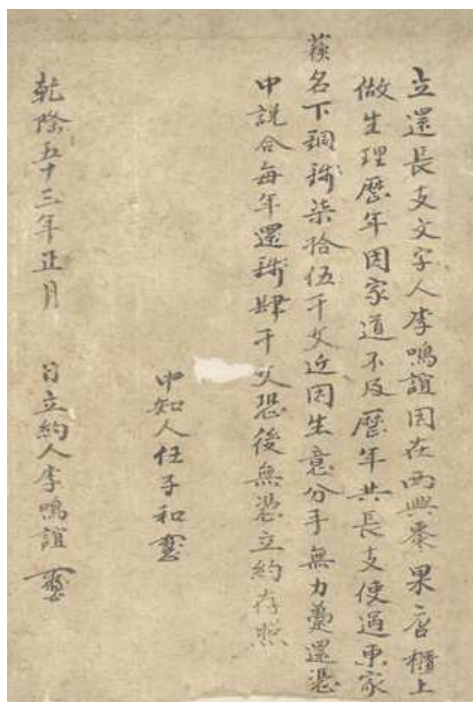 立還長支文字人李鳴誼因在西興果店櫃上
做生理歷年因家道不及歷年共長支使過東家
名下銅錢柒拾伍千文近因生意分手無力還憑
中說合每年還錢肆千文恐後無憑立約存照
中知人任子和
乾隆五十三年正月 日立約人李鳴誼